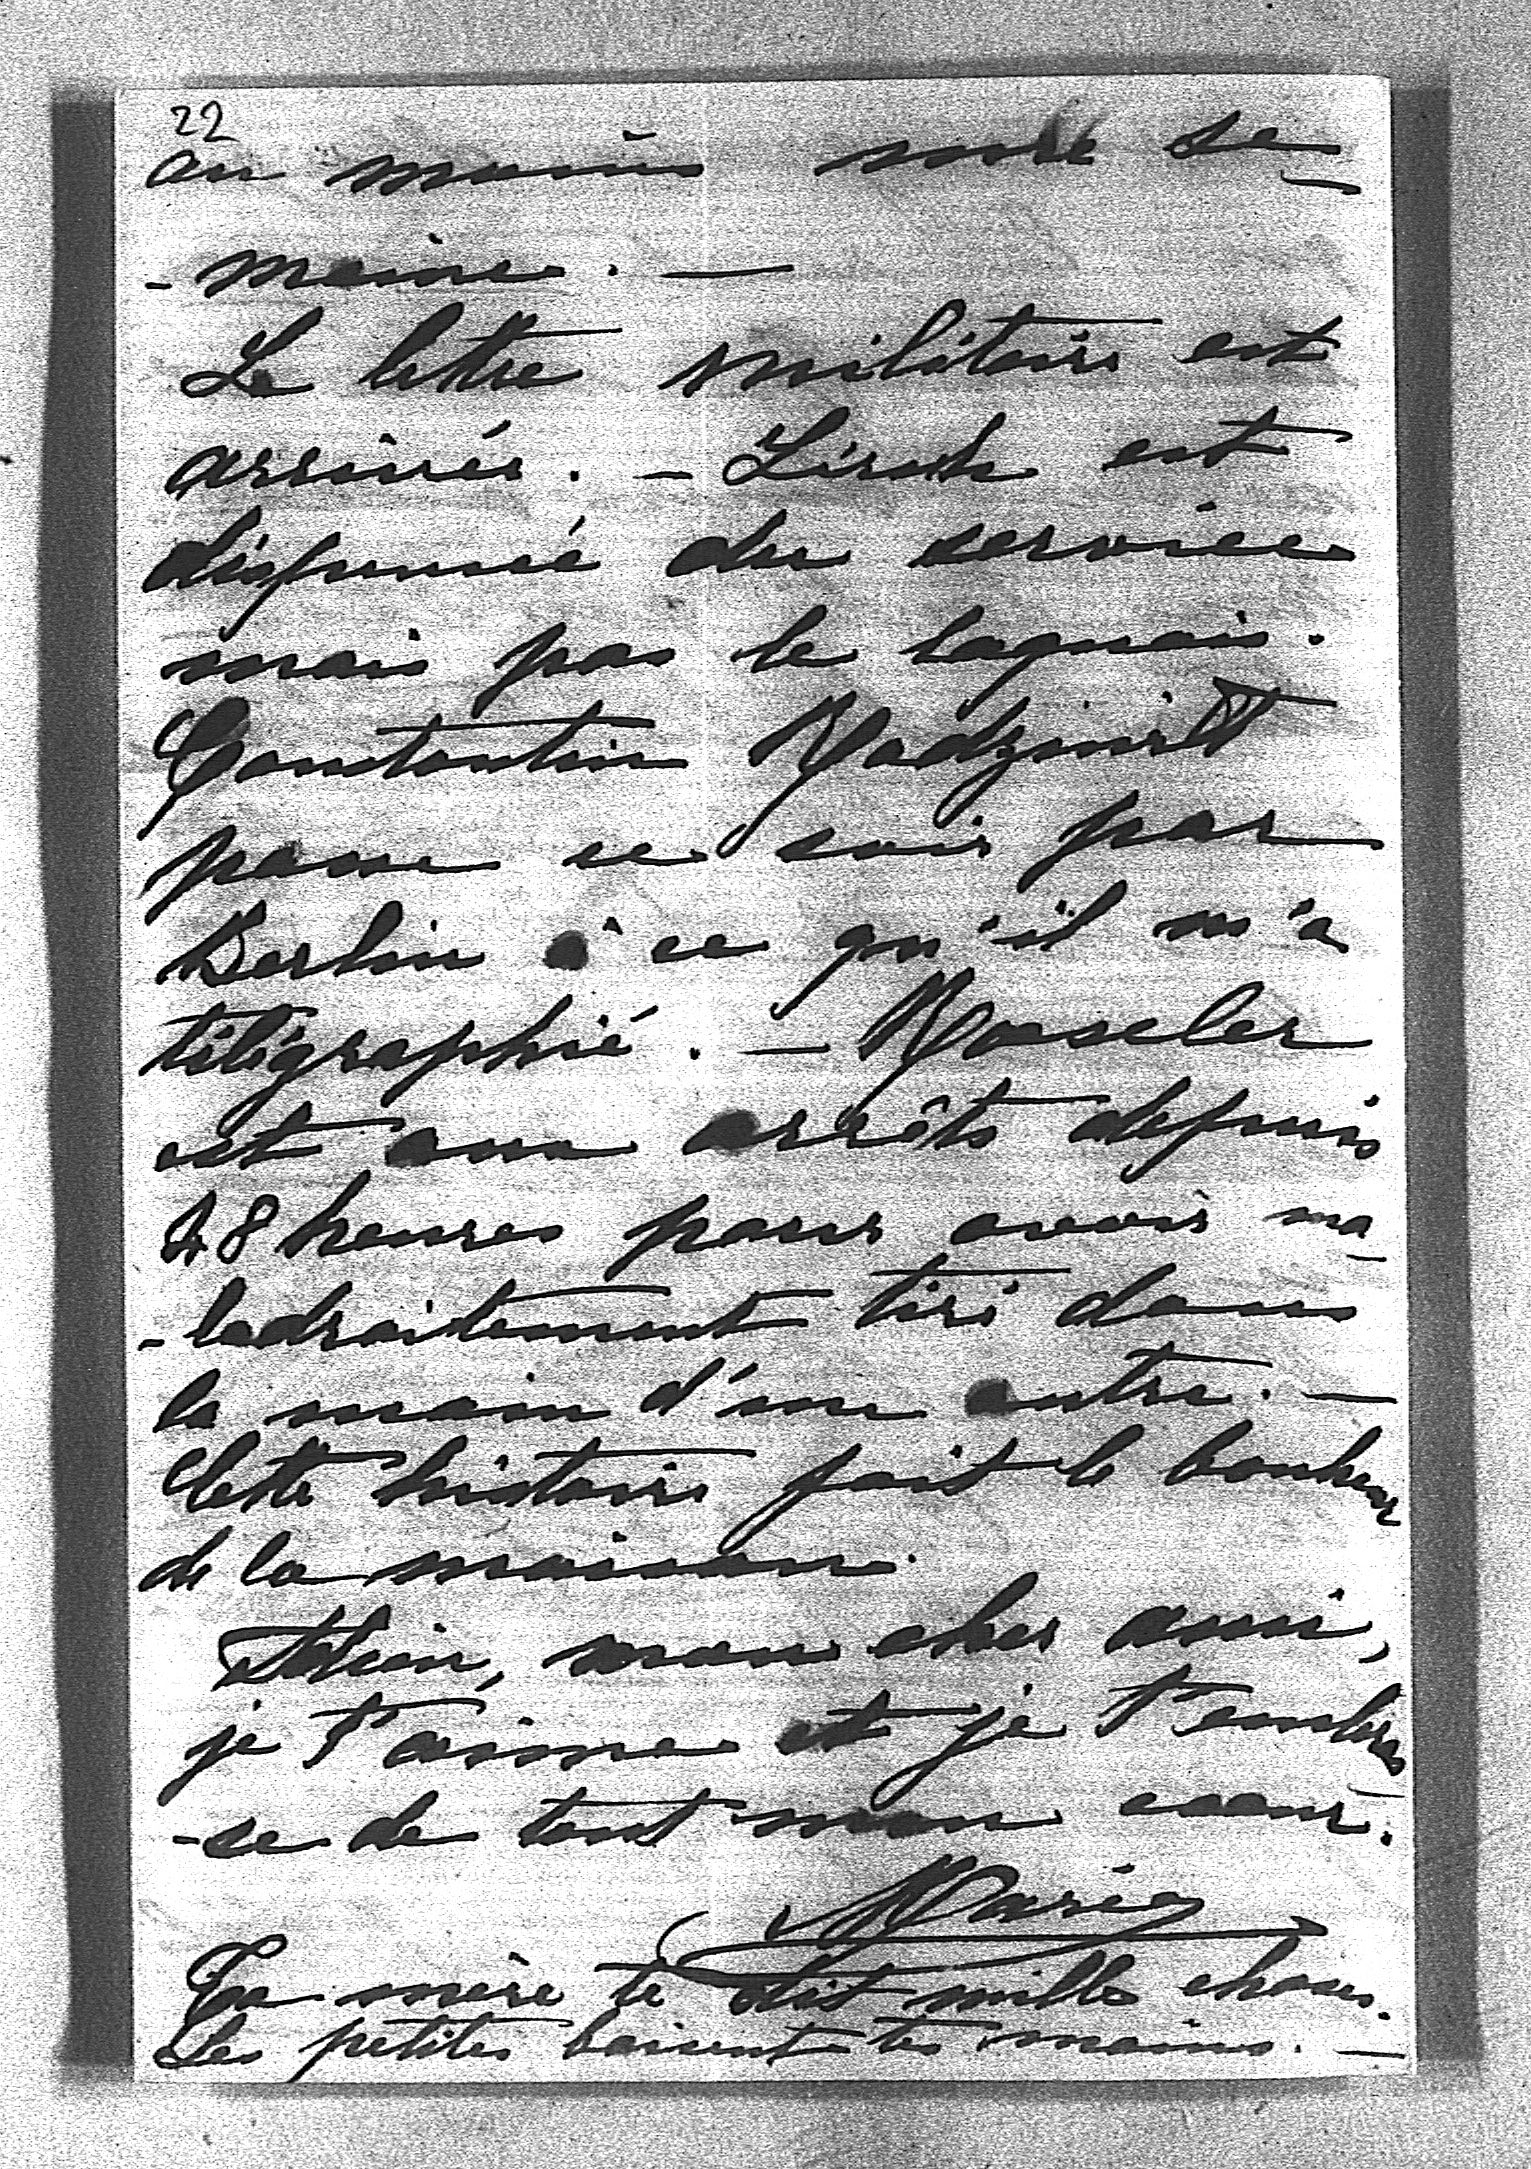 22
au moins une se-
-maine. —
La lettre militaire est
arrivée. — Lirch est
dispensé du service
mais pas le laquais.
Constantin Radziwill
passe ce soir par
Berlin à ce qu'il m'a
télégraphié. —
est aux arrêts depuis
48 heures pour avoir ma-
-ladroitement tiré dans
la main d'un autre. —
Cette histoire fait le bonheur
de la maison.
Adieu, mon cher ami,
je t'aime et je t'embras-
-se de tout mon coeur.
Marie
Ta mère te dit mille choses.
Les petites baisent tes mains. —